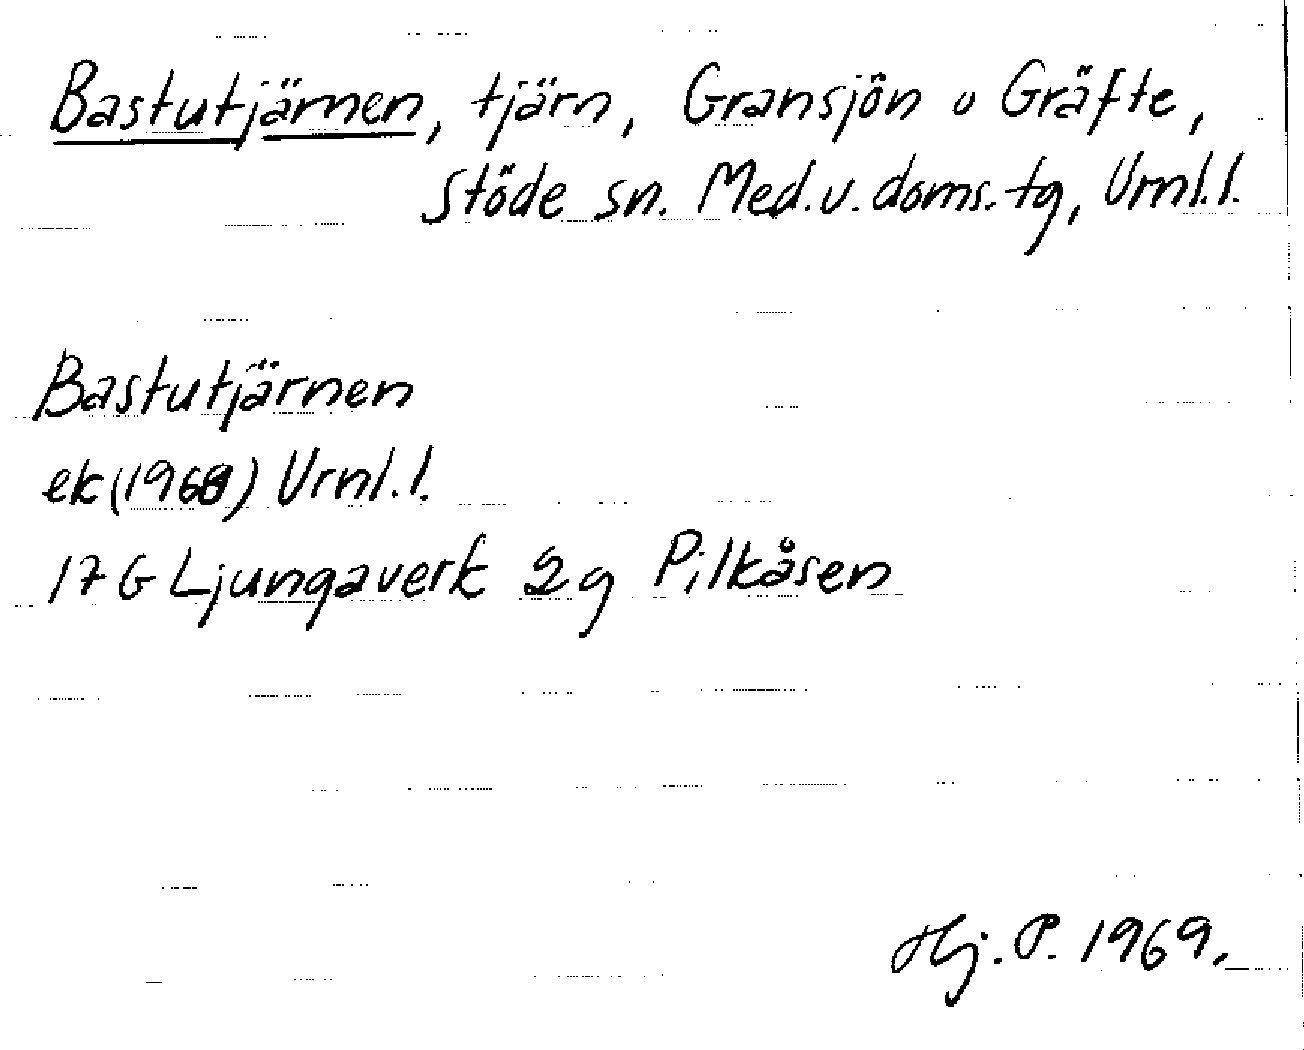 Bastutjärnen, tjärn, Gransjön o Gräfte,
Stöde sn. Med.v.doms.tg, Vrnl.l.
Bastutjärnen
ek(1968) Vrnl.l.
17G Ljungaverk 2g Pilkåsen
Hj. P. 1969.